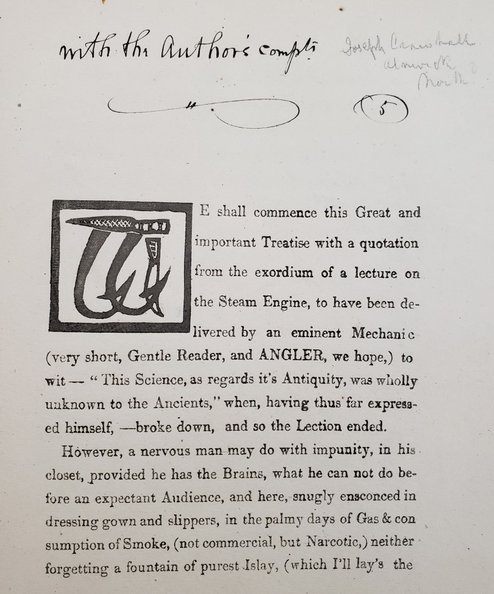 with the Author's compts
Joseph
Alnwick
North
5
WE shall commence this Great and
important Treatise with a quotation
from the exordium of a lecture on
the Steam Engine, to have been de-
livered by an eminent Mechanic
(very short, Gentle Reader, and ANGLER, we hope,) to
wit— “This Science, as regards it's Antiquity, was wholly
unknown to the Ancients,” when, having thus far express-
ed himself, —broke down, and so the Lection ended.
However, a nervous man may do with impunity, in his
closet, provided he has the Brains, what he can not do be-
fore an expectant Audience, and here, snugly ensconced in
dressing gown and slippers, in the palmy days of Gas & con
sumption of Smoke, (not commercial, but Narcotic,) neither
forgetting a fountain of purest Islay, (which I'll lay's the